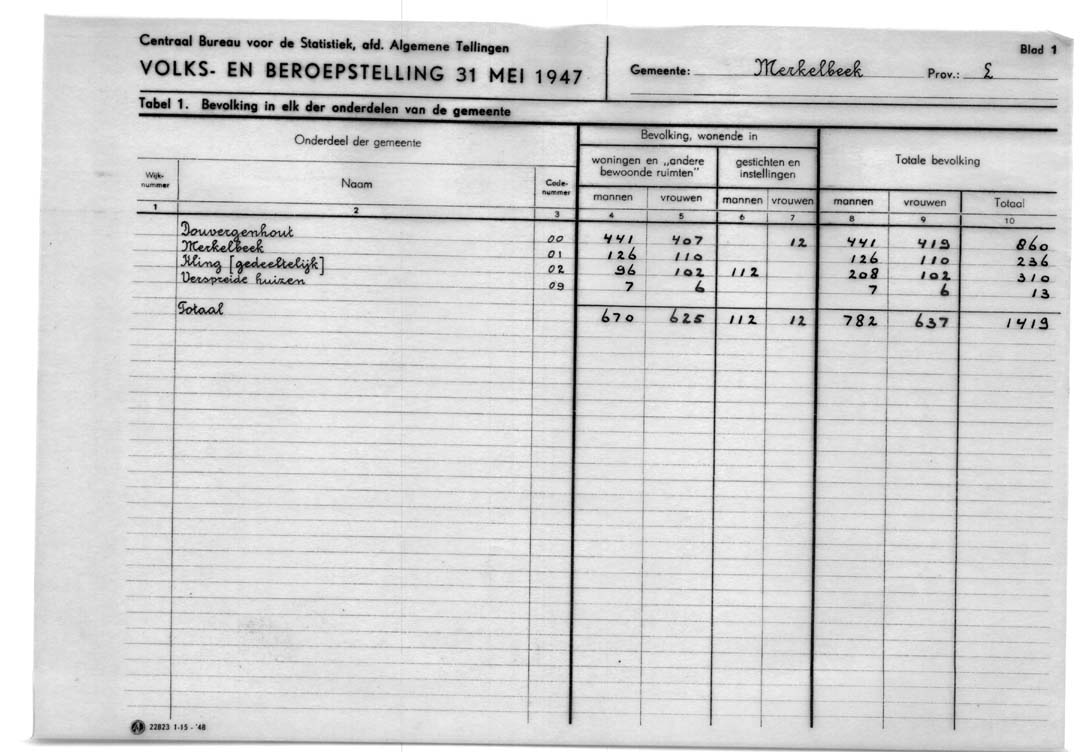 Centraal Bureau voor de Statistiek, afd. Algemene Tellingen
VOLKS- EN BEROEPSTELLING 31 MEI 1947
Gemeente: Merkelbeek Prov.: L
Blad 1
Tabel 1. Bevolking in elk der onderdelen van de gemeente
Onderdeel der gemeente
Bevolking, wonende in
Totale bevolking
woningen en „andere bewoonde ruimten"
gestichten en instellingen
Wijk-nummer Naam Code-nummer mannen vrouwen mannen vrouwen mannen vrouwen Totaal
1 2 3 4 5 6 7 8 9 10
Douvergenhout 00 441 407 12 441 419 860
Merkelbeek 01 126 110 126 110 236
Kling [gedeeltelijk] 02 96 102 112 208 102 310
Verspreide huizen 09 7 6 7 6 13
Totaal 670 625 112 12 782 637 1419
22823 1-15 - '48